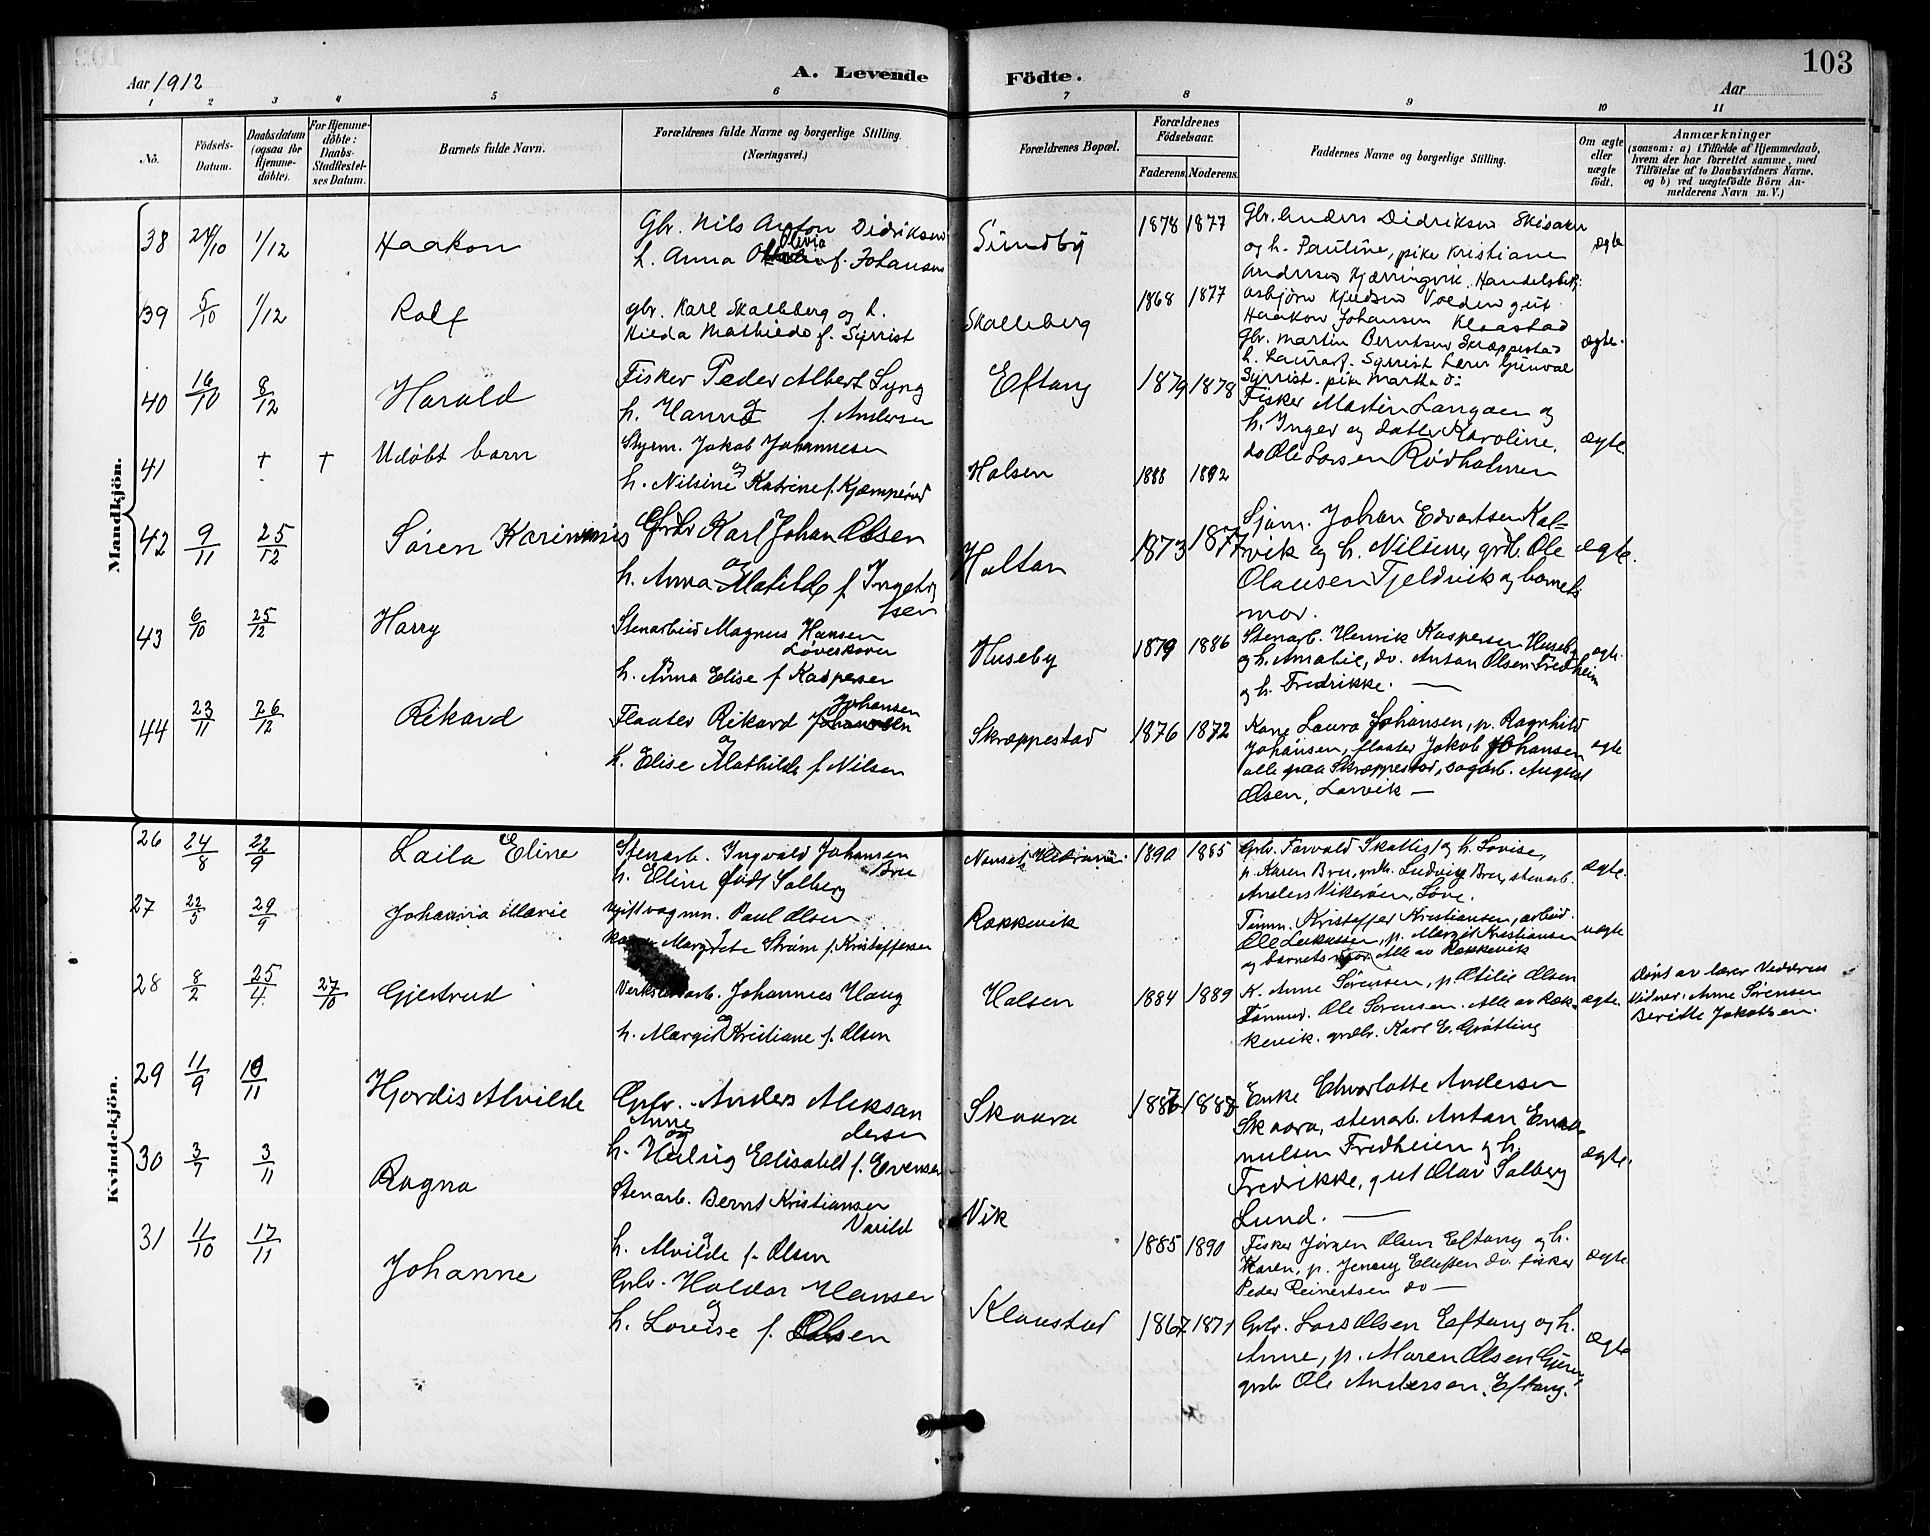 103
Aar 1912
A. Levende
Födte.
Aar
1 2 3 4 5 6 7 8 9 10 11
No.
Födsels-Datum.
Daabsdatum (ogsaa for Hjemme-döbte).
For Hjemme-döbte: Daabs-Stadfæstel-ses Datum.
Barnets fulde Navn.
Forældrenes fulde Navne og borgerlige Stilling.
(Næringsvei.)
Forældrenes Bopæl.
Forældrenes Födselsaar.
Faderens. Moderens.
Faddernes Navne og borgerlige Stilling.
Om ægte eller uægte födt.
Anmærkninger
(saasom: a) i Tilfælde af Hjemmedaab,
hvem der har forrettet samme, med
Tilföielse af to Daabsvidners Navne.
og b) ved uægtefödte Börn An-
melderens Navn m. V.)
Mandkjön.
38 24/10 1/12 Haakon
Gbr. Nils Anton Didriksen
Olivia
h. Anna f. Johansen
Sundby 1878 1877
Gbr. Anders Didriksen Skisaker
og h. Pauline, pike Kristiane
Andersen Kjærringvik. Handelsbetj.
Asbjörn Kjeldsen Volden gut
Haakon Johansen Klaastad
ægte
39 5/10 1/12 Rolf
gbr. Karl Skalleberg og h.
Hilda Mathilde f. Syrrist
Skalleberg 1868 1877
Gbr. Martin Berntsen Skræppestad
h. Laura f. Syrrist Lærer Gunval
Syrrist. pike Martha do
ægte.
40 16/10 8/12 Harald
Fisker Peder Albert Lyng
og
h. Hanna f. Andersen
Eftang 1879 1878
Fisker Martin Langøen og
h. Inger og datter Karoline,
do Ole Larsen Rödholmen
ægte
41 + + Udöbt barn
Styrm. Jakob Johannesen
og
h. Nilsine Katrine f. Kjæmperöd
Halsen 1888 1892
42 9/11 25/12 Sören
Grbr Karl Johan Olsen
og
h. Anna Matilde f. Ingebrig
tsen
Holtan 1873 1877
Sjöm. Johan Edvartsen Kal-
vik og h. Nilsine, grbr. Ole
Olausen Tjeldvik og barnets
mor.
ægte.
43 6/10 25/12 Harry
Stenarbeid Magnus Hansen
Löveskoven
og
h. Anna Elise f. Kaspersen
Huseby 1879 1886
Stenarb. Henrik Kaspersen Huseby
og h. Amalie, do. Anton Olsen Fredheim
og h. Fredrikke. —
ægte.
44 23/11 26/12 Rikard
Johansen
Fløater Rikard
og
h. Elise Mathilde f. Nilsen
Skræppestad 1876 1872
Kone Laura Johansen, p. Ragnhild
Johansen, fløater Jakob Johansen
alle paa Skræppestad, sagarb. August
Olsen, Larvik —
ægte
Kvindekjön.
26 24/8 22/9 Laila Eline
Stenarb. Ingvald Johansen
Bru
h. Eline född Solberg
Nanset, 1890 1885
Grbr. Torvald Skallist og h. Lovise,
p. Karen Bru, grbr. Ludvig Bru, stenarb.
Anders Vikeröen, Löve.
ægte.
27 22/5 29/9 Johanna Marie
Ugift vognm. Paul Olsen
Margrete Ström f. Kristoffersen
Rakkevik
Tömm. Kristoffer Kristiansen, arbeid.
Ole Lukassen, p. Margit Kristiansen
og barnets mor. Alle av Rakkevik
uægte
28 8/2 25/4 27/10 Gjertrud
Verkstedarb. Johannes Haug
og
h. Margit Kristiane f. Olsen
Halsen 1884 1889
K. Anne Sörensen, p. Otilie Olsen
Tömmerm. Ole Sörensen. Alle av Rak-
kevik. grbr. Karl E. Gröttling
ægte.
Döpt av lærer Vedderus
Vidner: Anne Sörensen
Beritte Jakobsen.
29 11/9 10/11 Hjordis Alvilde
Grbr. Anders Aleksan
dersen
Anne
og
h. Helvig Elisabet f. Evensen
Skaara 1887 1888
Enke Charlotte Andersen
Skaara, stenarb. Anton Ema-
nulsen Fredheim og h.
Fredrikke, gut Olav Solberg
Lund. —
ægte.
30 3/7 3/11 Ragna
Stenarb. Bernt Kristiansen
Varild
og
h. Alvilde f. Olsen
Vik 1885 1890
Fisker Jörgen Olsen Eftang og h.
Karen, p. Jenny Ellefsen do. fisker
Peder Reinertsen do —
ægte.
31 11/10 17/11 Johanne
Grbr. Haldor Hansen
og
h. Lovise f. Olsen
Klaastad 1867 1871
Grbr. Lars Olsen Eftang og h.
Anne, p. Maren Olsen
grbr Ole Andersen, Eftang.
ægte